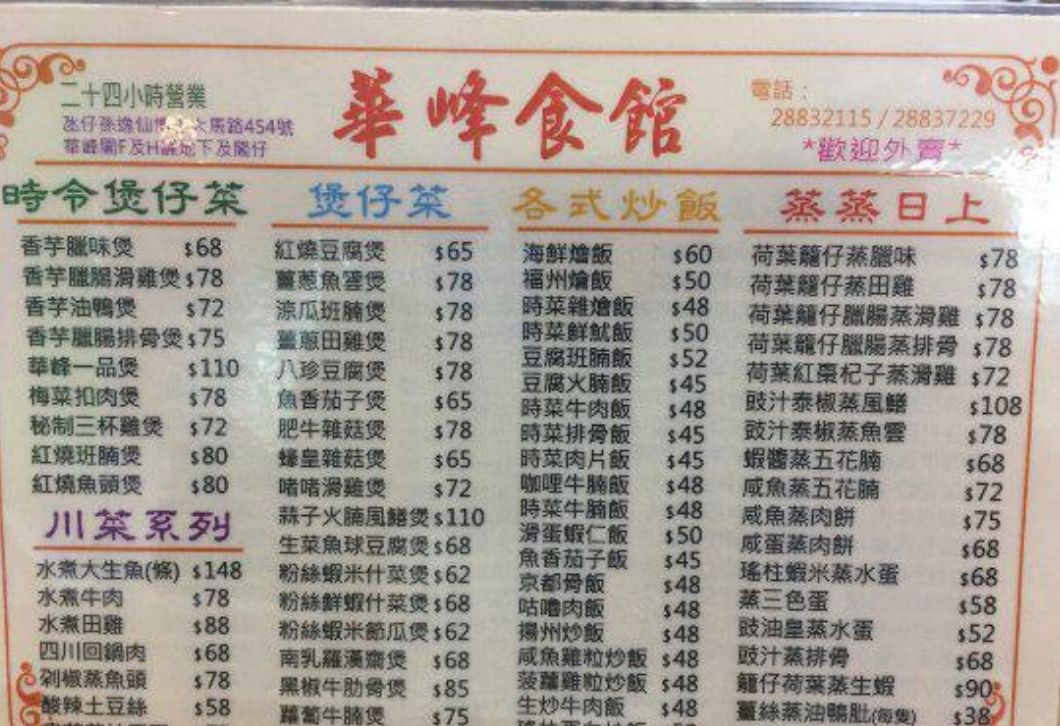 二十四小時營業
氹仔孫逸仙博士大馬路454號
華峰閣F及H舖地下及閣仔
華峰食館
電話：
28832115 / 28837229
*歡迎外賣*
時令煲仔菜
香芋臘味煲 $68
香芋臘腸滑雞煲 $78
香芋油鴨煲 $72
香芋臘腸排骨煲 $75
華峰一品煲 $110
梅菜扣肉煲 $78
秘制三杯雞煲 $72
紅燒班腩煲 $80
紅燒魚頭煲 $80
川菜系列
水煮大生魚(條) $148
水煮牛肉 $78
水煮田雞 $88
四川回鍋肉 $68
剁椒蒸魚頭 $78
酸辣土豆絲 $58
煲仔菜
紅燒豆腐煲 $65
薑蔥魚雲煲 $78
涼瓜班腩煲 $78
薑蔥田雞煲 $78
八珍豆腐煲 $78
魚香茄子煲 $65
肥牛雜菇煲 $78
蠔皇雜菇煲 $65
啫啫滑雞煲 $72
蒜子火腩風鱔煲 $110
生菜魚球豆腐煲 $68
粉絲蝦米什菜煲 $62
粉絲鮮蝦什菜煲 $68
粉絲蝦米節瓜煲 $62
南乳羅漢齋煲 $68
黑椒牛肋骨煲 $85
蘿蔔牛腩煲 $75
各式炒飯
海鮮燴飯 $60
福州燴飯 $50
時菜雜燴飯 $48
時菜鮮魷飯 $50
豆腐班腩飯 $52
豆腐火腩飯 $45
時菜牛肉飯 $48
時菜排骨飯 $45
時菜肉片飯 $45
咖哩牛腩飯 $48
時菜牛腩飯 $48
滑蛋蝦仁飯 $50
魚香茄子飯 $45
京都骨飯 $48
咕嚕肉飯 $48
揚州炒飯 $48
咸魚雞粒炒飯 $48
菠蘿雞粒炒飯 $48
生炒牛肉飯 $48
蒸蒸日上
荷葉籠仔蒸臘味 $78
荷葉籠仔蒸田雞 $78
荷葉籠仔臘腸蒸滑雞 $78
荷葉籠仔臘腸蒸排骨 $78
荷葉紅棗杞子蒸滑雞 $72
豉汁泰椒蒸風鱔 $108
豉汁泰椒蒸魚雲 $78
蝦醬蒸五花腩 $68
咸魚蒸五花腩 $72
咸魚蒸肉餅 $75
咸蛋蒸肉餅 $68
瑤柱蝦米蒸水蛋 $68
蒸三色蛋 $58
豉油皇蒸水蛋 $52
豉汁蒸排骨 $68
籠仔荷葉蒸生蝦 $90
薑絲蒸油鴨肶(每隻) $38